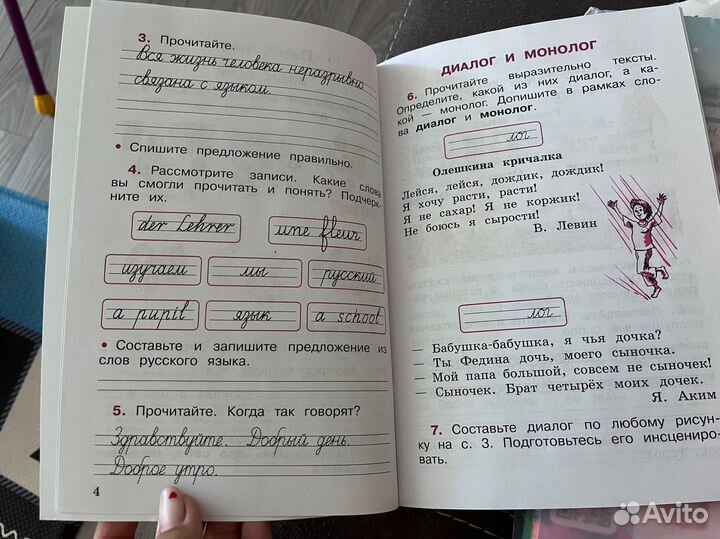 3. Прочитайте.
Вся жизнь человека неразрывно
связана с языком.
• Спишите предложение правильно.
4. Рассмотрите записи. Какие слова
вы смогли прочитать и понять? Подчерк-
ните их.
der Lehrer une fleur
изучаем мы русский
a pupil язык a school
• Составьте и запишите предложение из
слов русского языка.
5. Прочитайте. Когда так говорят?
Здравствуйте. Добрый день.
Доброе утро.
4
ДИАЛОГ И МОНОЛОГ
6. Прочитайте выразительно тексты.
Определите, какой из них диалог, а ка-
кой — монолог. Допишите в рамках сло-
ва диалог и монолог.
лог
Олешкина кричалка
Лейся, лейся, дождик, дождик!
Я хочу расти, расти!
Я не сахар! Я не коржик!
Не боюсь я сырости!
В. Левин
лог
— Бабушка-бабушка, я чья дочка?
— Ты Федина дочь, моего сыночка.
— Мой папа большой, совсем не сыночек!
— Сыночек. Брат четырёх моих дочек.
Я. Аким
7. Составьте диалог по любому рисун-
ку на с. 3. Подготовьтесь его инсцениро-
вать.
Avito